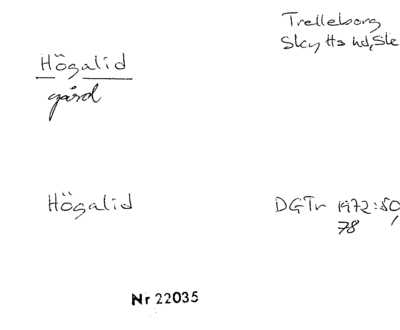 Trelleborg
Skytts hd, Sk
Högalid
gård
Högalid
DGTr 1972:50,
78
Nr 22035